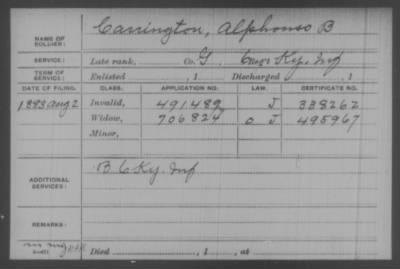 Carrington, Alphonso B
NAME OF SOLDIER:
SERVICE: Late rank, Co. G, Ky. Inf
TERM OF SERVICE: Enlisted , 1 Discharged , 1
DATE OF FILING. CLASS. APPLICATION NO. LAW. CERTIFICATE NO.
1883 Aug 2 Invalid, 491489 J 338262
Widow, 706824 O J 495967
Minor,
B 6 Ky. Inf
ADDITIONAL SERVICES:
REMARKS:
Died , 1 , at